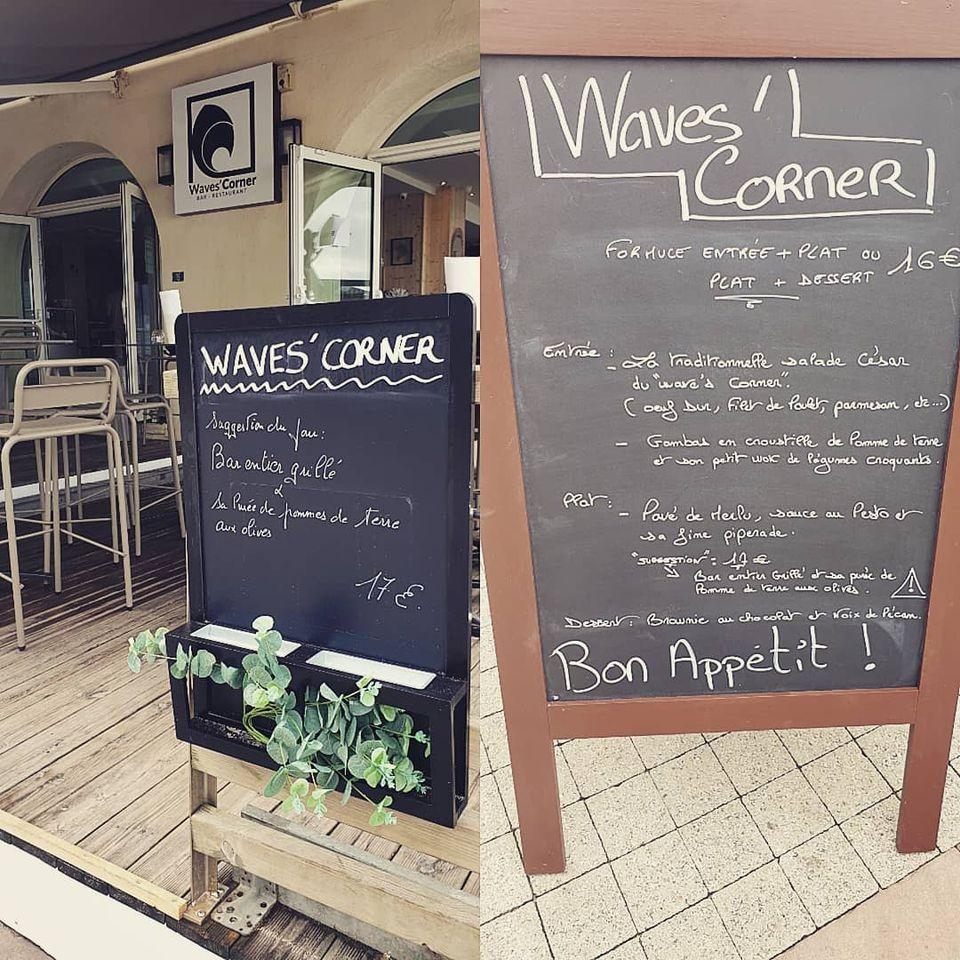 Waves'Corner
BAR - RESTAURANT
WAVES'CORNER
Suggestion du jour:
Bar entier grillé
&
sa Purée de pommes de terre
aux olives
17 €.
Waves'
CORNER
FORMULE ENTRÉE + PLAT OU 16 €
PLAT + DESSERT
Entrée : - La traditionnelle salade César
du "wave's Corner".
(oeuf Dur, Filet de Poulet, parmesan, etc...)
- Gambas en croustille de Pomme de terre
et son petit wok de légumes croquants.
Plat : - Pavé de Merlu, sauce au Pesto et
sa fine piperade.
"SUGGESTION" : 17 €
Bar entier Grillé et sa purée de
Pomme de terre aux olives.
Dessert : Brownie au chocolat et Noix de Pécan.
Bon Appétit !